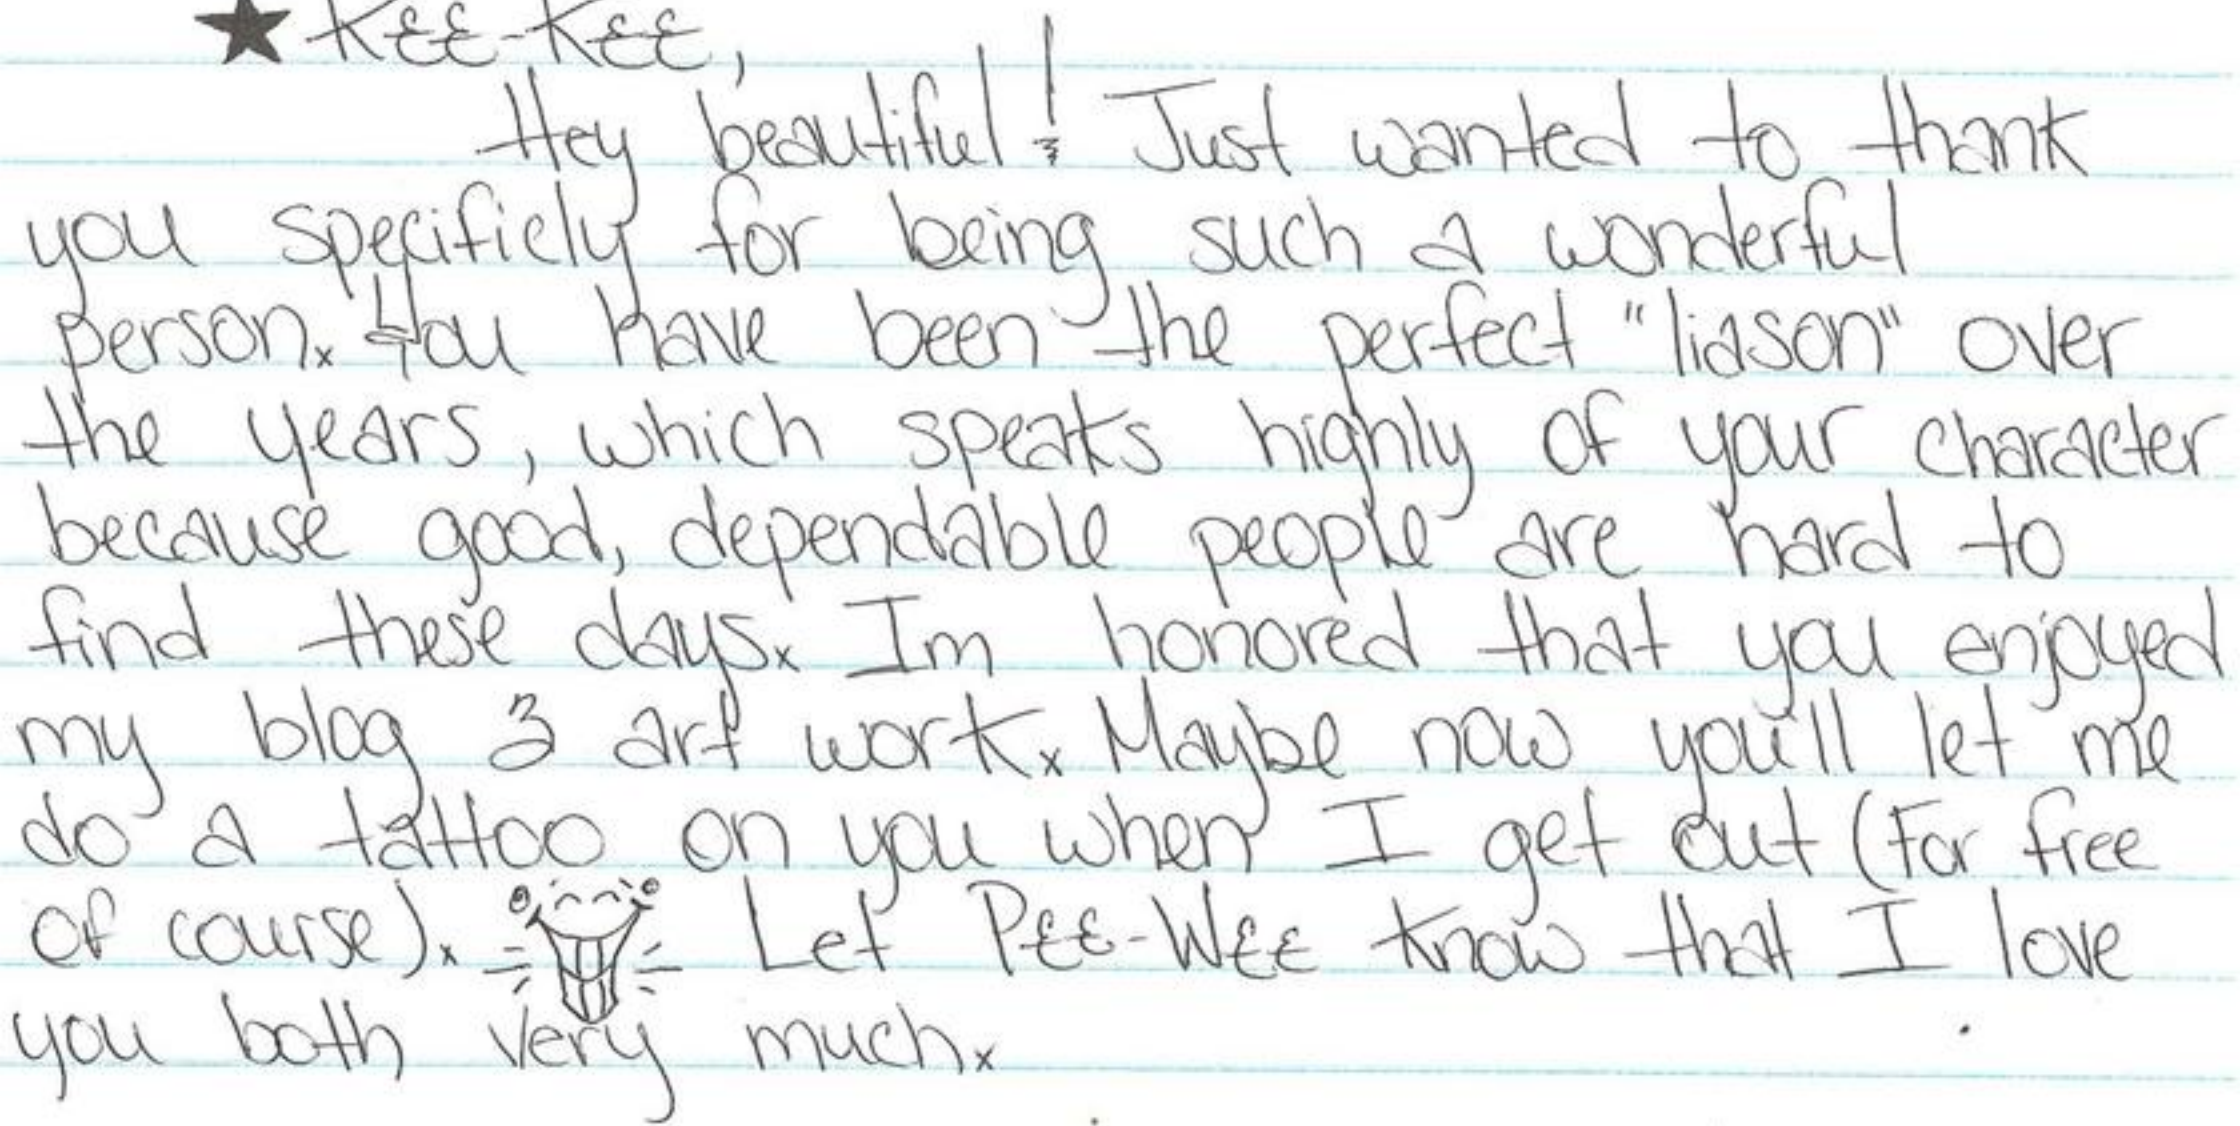 ★ KEE-KEE,
Hey beautiful! Just wanted to thank
you specificly for being such a wonderful
person. You have been the perfect "liason" over
the years, which speaks highly of your character
because good, dependable people are hard to
find these days. Im honored that you enjoyed
my blog & art work. Maybe now you'll let me
do a tattoo on you when I get out (For free
of course). Let PEE-WEE know that I love
you both very much.